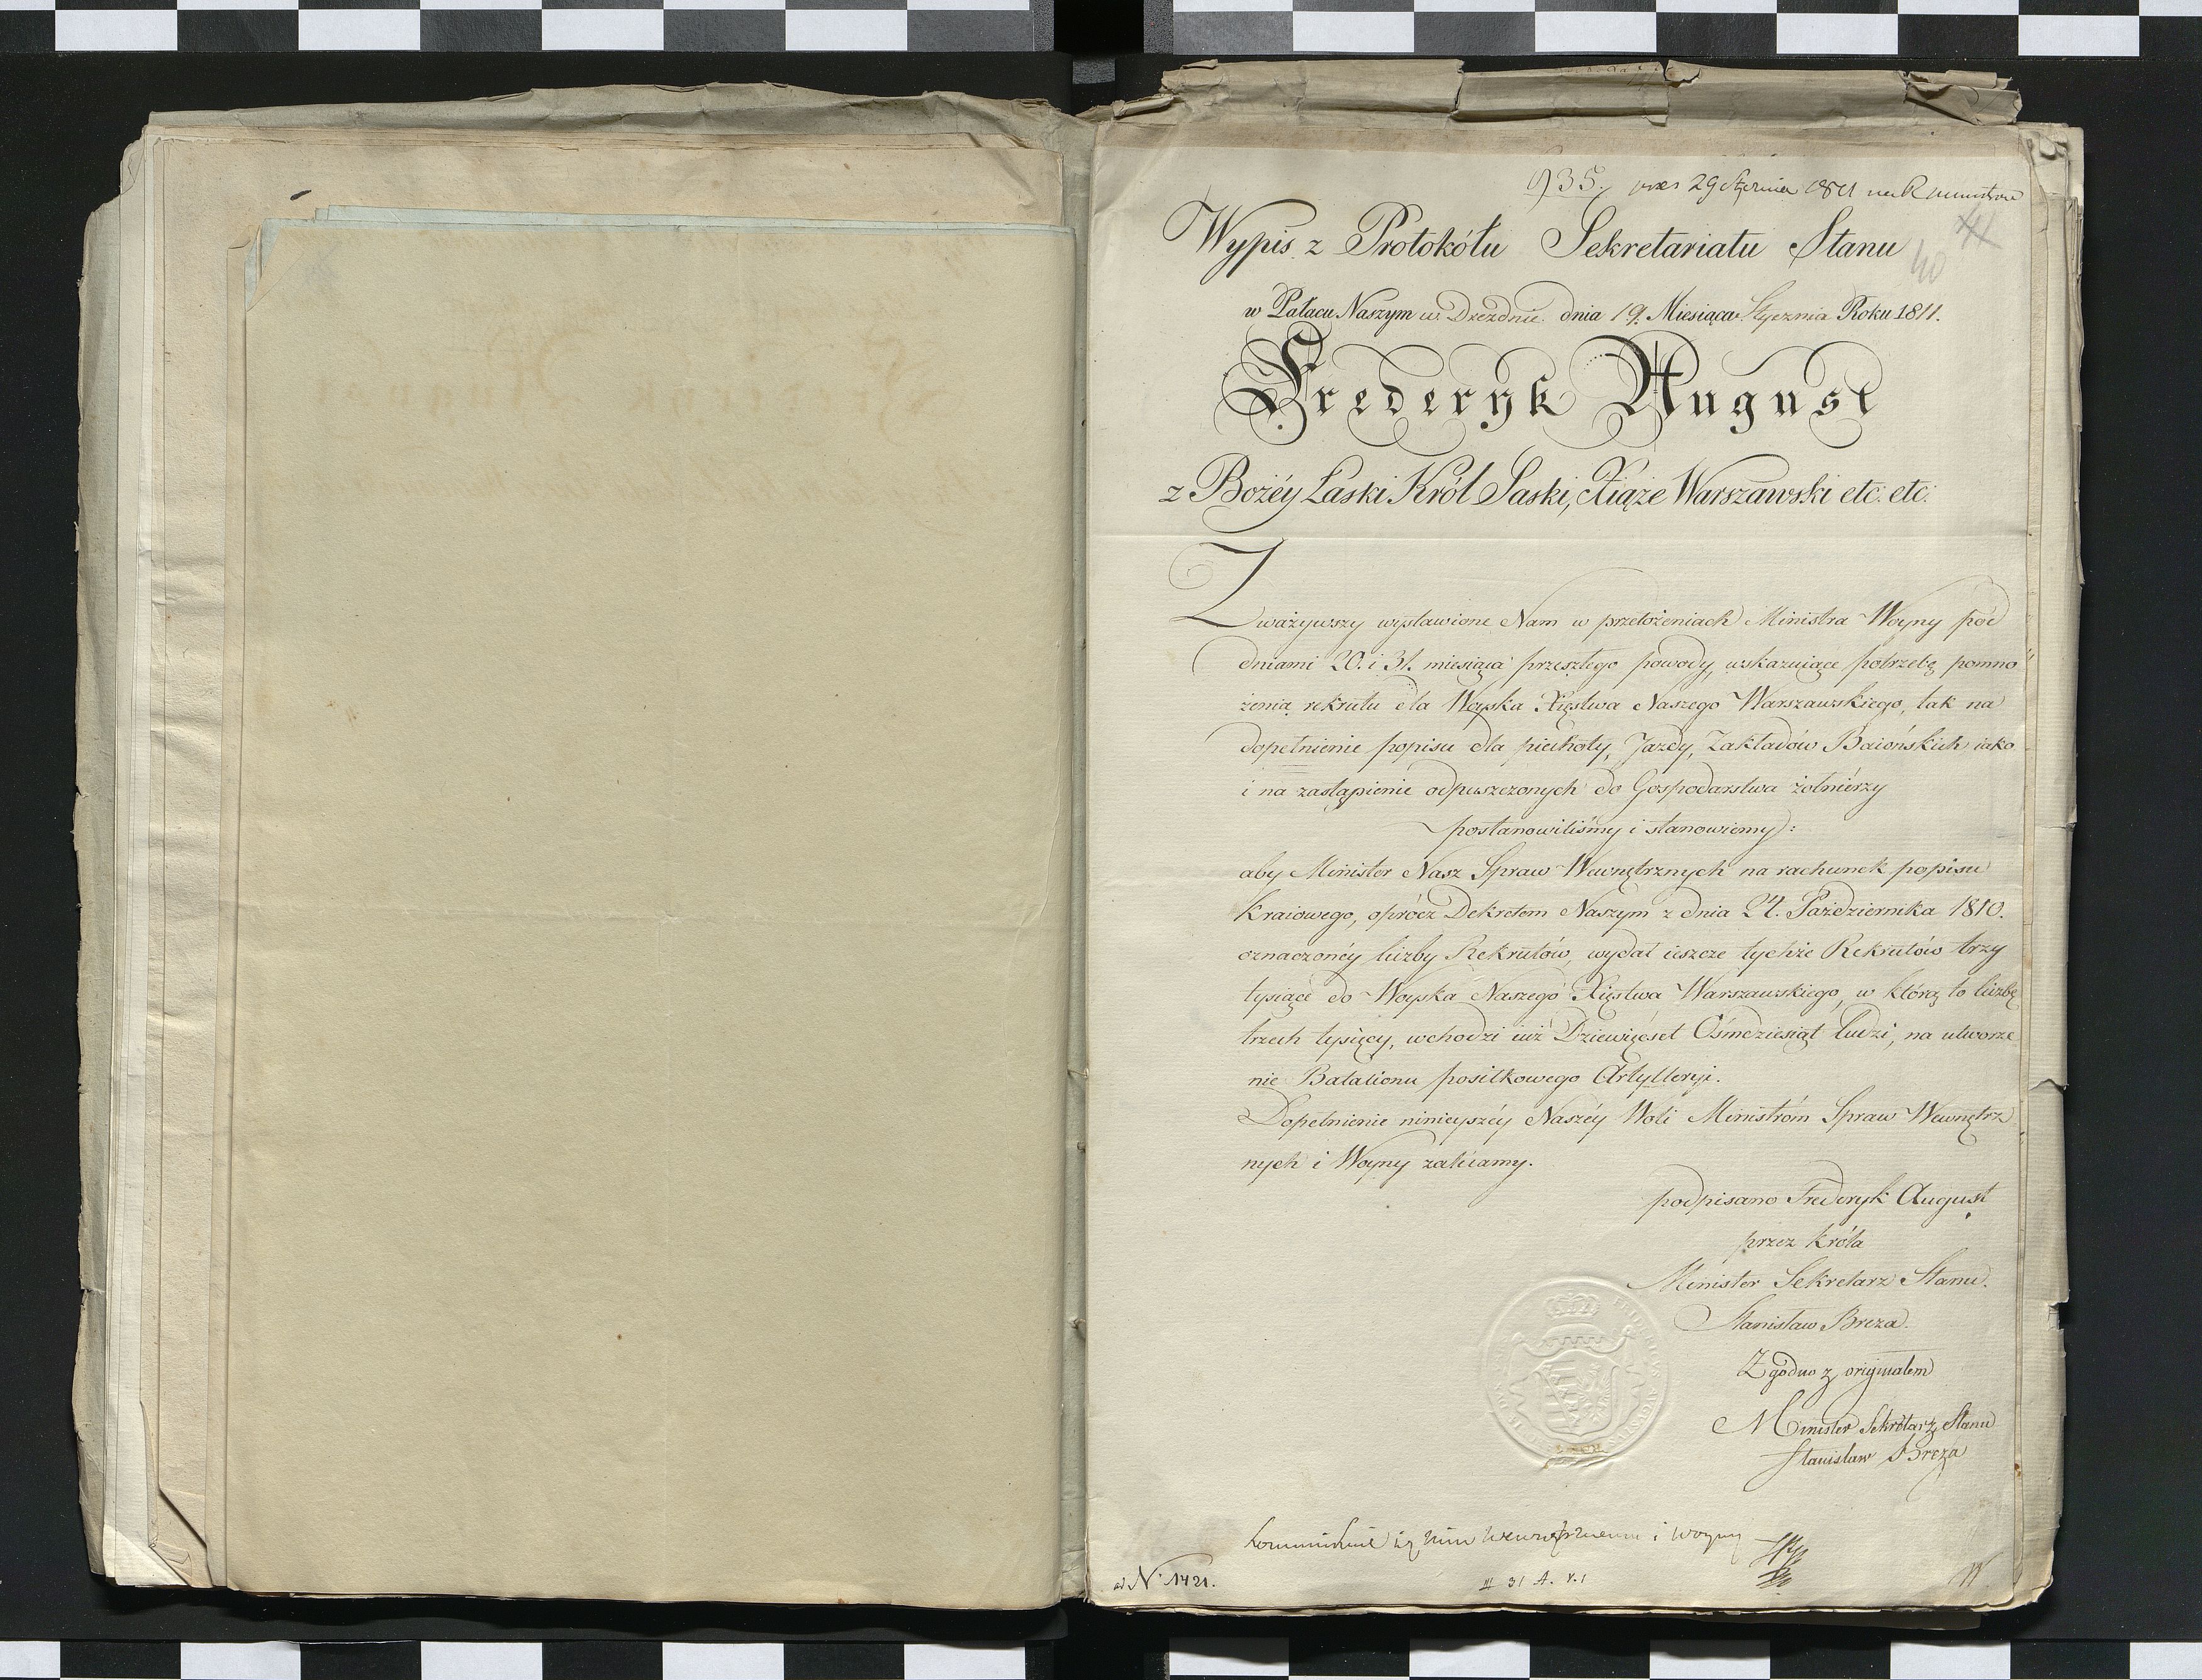 935. 29 Stycznia 1811
41
40
Wypis z Protokółu Sekretariatu Stanu
w Pałacu Naszym w Dreznie dnia 19. Miesiąca Stycznia Roku 1811.
Frederyk August
z Bożéy Łaski Król Saski, Xiąże Warszawski etc: etc:
Zważywszy wystawione Nam w przełożeniach Ministra Woyny pod
dniami 20. i 31. miesiąca przeszłego powody, wskazuiące potrzebę pomno
żenia rekrutu dla Woyska Xięstwa Naszego Warszawskiego, tak na
dopełnienie popisu dla piechoty, Jazdy, Zakładów Baiońskich iako
i na zastąpienie odpuszczonych do Gospodarstwa żołniérzy
postanowiliśmy i stanowiemy:
aby Minister Nasz Spraw Wewnętrznych na rachunek popisu
kraiowego, oprócz Dekretem Naszym z dnia 24. Października 1810.
oznaczonéy liczby Rekrutów, wydał ieszcze tychże Rekrutów trzy
tysiące do Woyska Naszego Xięstwa Warszawskiego, w którą to liczbę
trzech tysięcy, wchodzi iuż Dziewięćset Ośmdziesiąt ludzi, na utworze
nie Batalionu posiłkowego Artylleryi.
Dopełnienie ninieyszéy Naszéy Woli Ministróm Spraw Wewnętrz
nych i Woyny zalecamy.
podpisano Frederyk August
przez Króla
Minister Sekretarz Stanu.
Stanisław Breza.
Zgodno z originałem
Minister Sekretarz Stanu
Stanisław Breza
i woyny
ad N. 1421.
III 31 A. V.1